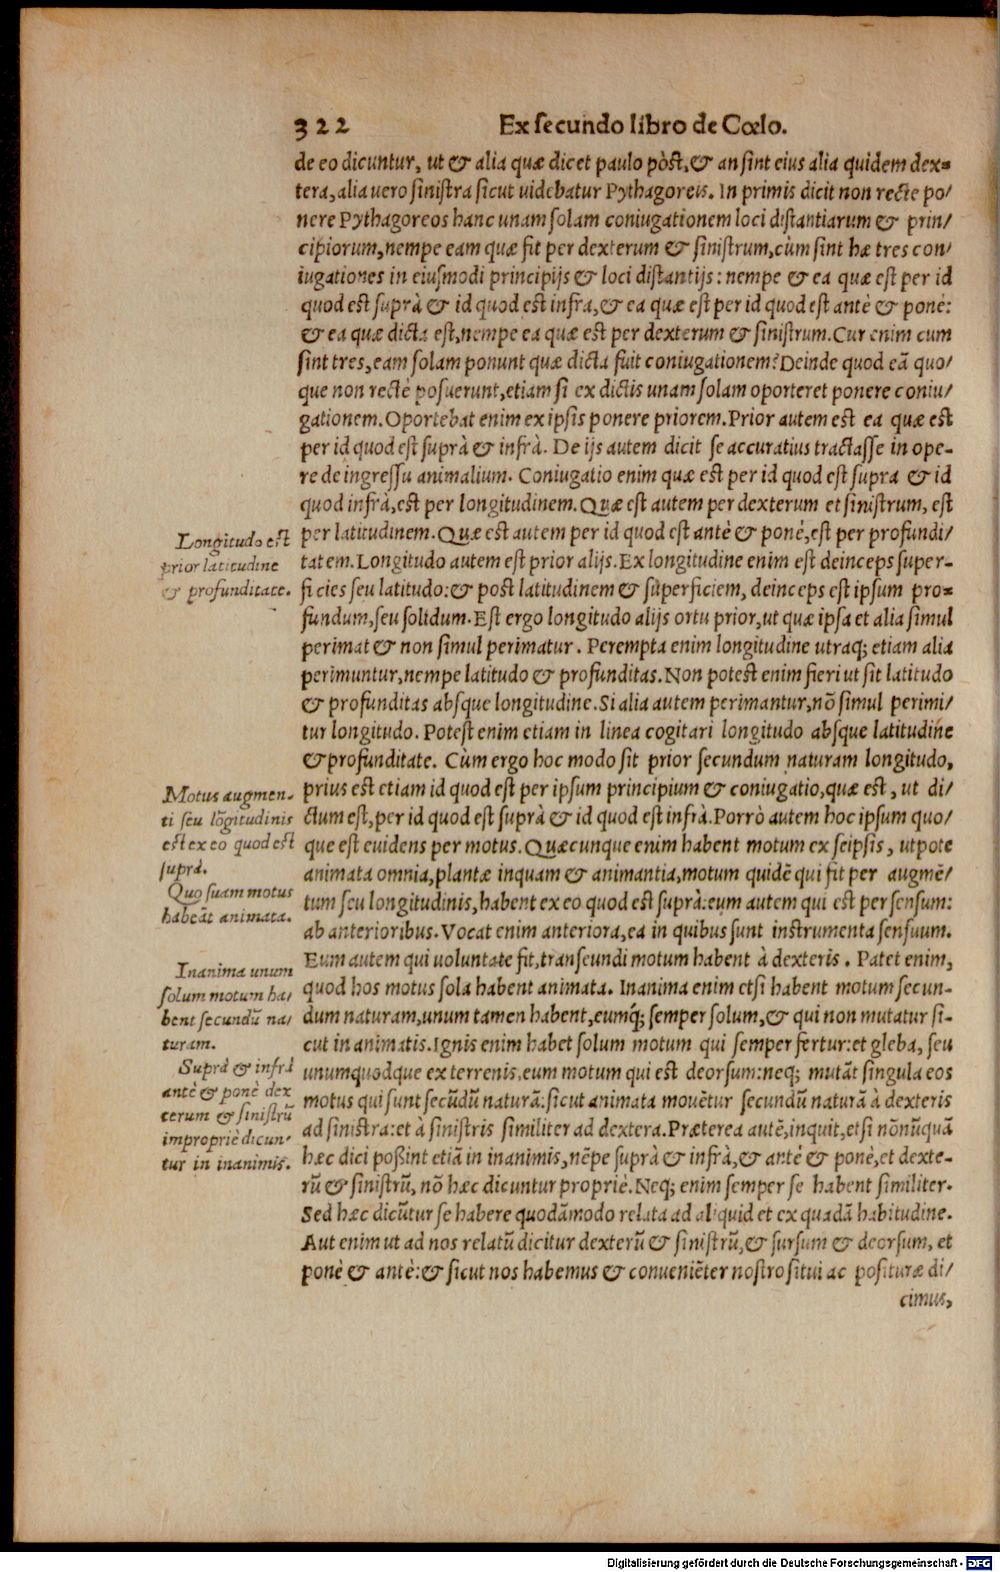 322 Ex secundo libro de Cœlo.
de eo dicuntur, ut & alia quæ dicet paulo pòst, & an sint eius alia quidem dex=
tera, alia uero sinistra sicut uidebatur Pythagoreis. In primis dicit non recte po/
nere Pythagoreos hanc unam solam coniugationem loci distantiarum & prin/
cipiorum, nempe eam quæ fit per dexterum & sinistrum, cùm sint hæ tres con/
iugationes in eiusmodi principijs & loci distantijs: nempe & ea quæ est per id
quod est suprà & id quod est infra, & ea quæ est per id quod est antè & ponè:
& ea quæ dicta est, nempe ea quæ est per dexterum & sinistrum. Cur enim cum
sint tres, eam solam ponunt quæ dicta fuit coniugationem? Deinde quod eā quo/
que non rectè posuerunt, etiam si ex dictis unam solam oporteret ponere coniu/
gationem. Oportebat enim ex ipsis ponere priorem. Prior autem est ea quæ est
per id quod est suprà & infrà. De ijs autem dicit se accuratius tractasse in ope-
re de ingressu animalium. Coniugatio enim quæ est per id quod est supra & id
quod infrà, est per longitudinem. Quæ est autem per dexterum et sinistrum, est
per latitudinem. Quæ est autem per id quod est antè & ponè, est per profundi/
tatem. Longitudo autem est prior alijs. Ex longitudine enim est deinceps super-
ficies seu latitudo: & post latitudinem & superficiem, deinceps est ipsum pro=
fundum, seu solidum. Est ergo longitudo alijs ortu prior, ut quæ ipsa et alia simul
perimat & non simul perimatur. Perempta enim longitudine utraq; etiam alia
perimuntur, nempe latitudo & profunditas. Non potest enim fieri ut sit latitudo
& profunditas absque longitudine. Si alia autem perimantur, nō simul perimi/
tur longitudo. Potest enim etiam in linea cogitari longitudo absque latitudine
& profunditate. Cùm ergo hoc modo sit prior secundum naturam longitudo,
prius est etiam id quod est per ipsum principium & coniugatio, quæ est, ut di/
ctum est, per id quod est suprà & id quod est infrà. Porrò autem hoc ipsum quo/
que est euidens per motus. Quæcunque enim habent motum ex seipsis, utpote
animata omnia, plantæ inquam & animantia, motum quidē qui fit per augmē/
tum seu longitudinis, habent ex eo quod est suprà: eum autem qui est per sensum:
ab anterioribus. Vocat enim anteriora, ea in quibus sunt instrumenta sensuum.
Eum autem qui uoluntate fit, transeundi motum habent à dexteris. Patet enim,
quod hos motus sola habent animata. Inanima enim etsi habent motum secun-
dum naturam, unum tamen habent, eumq́; semper solum, & qui non mutatur si-
cut in animatis. Ignis enim habet solum motum qui semper fertur: et gleba, seu
unumquodque ex terrenis, eum motum qui est deorsum: neq; mutāt singula eos
motus qui sunt secūdū naturā: sicut animata mouētur secundū naturā à dexteris
ad sinistra: et à sinistris similiter ad dextera. Præterea autē, inquit, etsi nōnūquā
hæc dici poßint etiā in inanimis, nēpe suprà & infrà, & antè & ponè, et dexte-
rū & sinistrū, nō hæc dicuntur propriè. Neq; enim semper se habent similiter.
Sed hæc dicūtur se habere quodāmodo relata ad aliquid et ex quadā habitudine.
Aut enim ut ad nos relatū dicitur dexterū & sinistrū, & sursum & deorsum, et
ponè & antè: & sicut nos habemus & conueniēter nostro situi ac posituræ di/
cimus,
Longitudo est
prior latitudine
& profunditate.
Motus augmen-
ti seu lōgitudinis
est ex eo quod est
suprà.
Quo suam motus
habeāt animata.
Inanima unum
solum motum ha/
bent secundū na/
turam.
Suprà & infrà
antè & ponè dex
terum & sinistrū
impropriè dicun-
tur in inanimis.
Digitalisierung gefördert durch die Deutsche Forschungsgemeinschaft - DFG